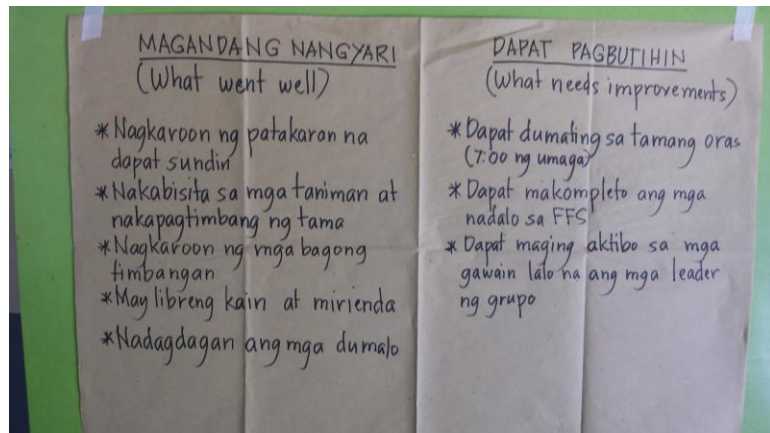 MAGANDANG NANGYARI
(What went well)
* Nagkaroon ng patakaran na
dapat sundin
* Nakabisita sa mga taniman at
nakapagtimbang ng tama
* Nagkaroon ng mga bagong
timbangan
* May libreng kain at mirienda
* Nadagdagan ang mga dumalo
DAPAT PAGBUTIHIN
(What needs improvements)
* Dapat dumating sa tamang oras
(7:00 ng umaga)
* Dapat makompleto ang mga
nadalo sa FFS
* Dapat maging aktibo sa mga
gawain lalo na ang mga leader
ng grupo